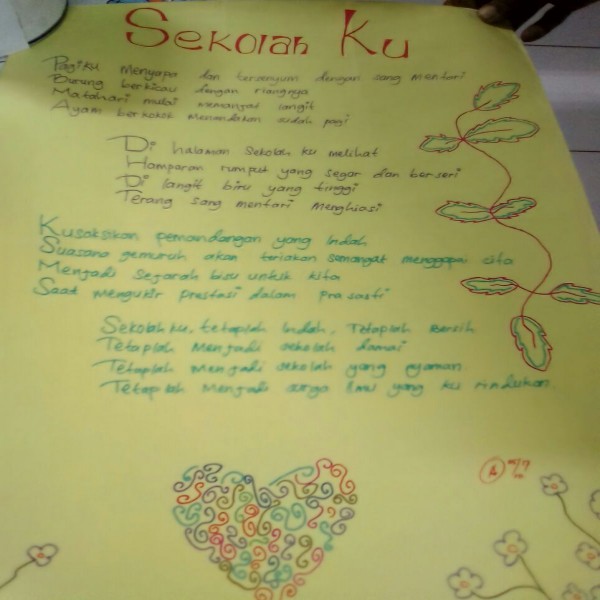 Sekolah Ku
Pagiku menyapa dan tersenyum dengan sang mentari
Burung berkicau dengan riangnya
Matahari mulai memanjat langit
Ayam berkokok menandakan sudah pagi
Di halaman sekolah ku melihat
Hamparan rumput yang segar dan berseri
Di langit biru yang tinggi
Terang sang mentari Menghiasi
Kusaksikan pemandangan yang Indah
Suasana gemuruh akan teriakan semangat menggapai cita
Menjadi Sejarah bisu untuk kita
Saat mengukir prestasi dalam prasasti
Sekolah ku, tetaplah Indah, Tetaplah Bersih
Tetaplah Menjadi sekolah damai
Tetaplah Menjadi sekolah yang nyaman
Tetaplah Menjadi surga Ilmu yang ku rindukan
A